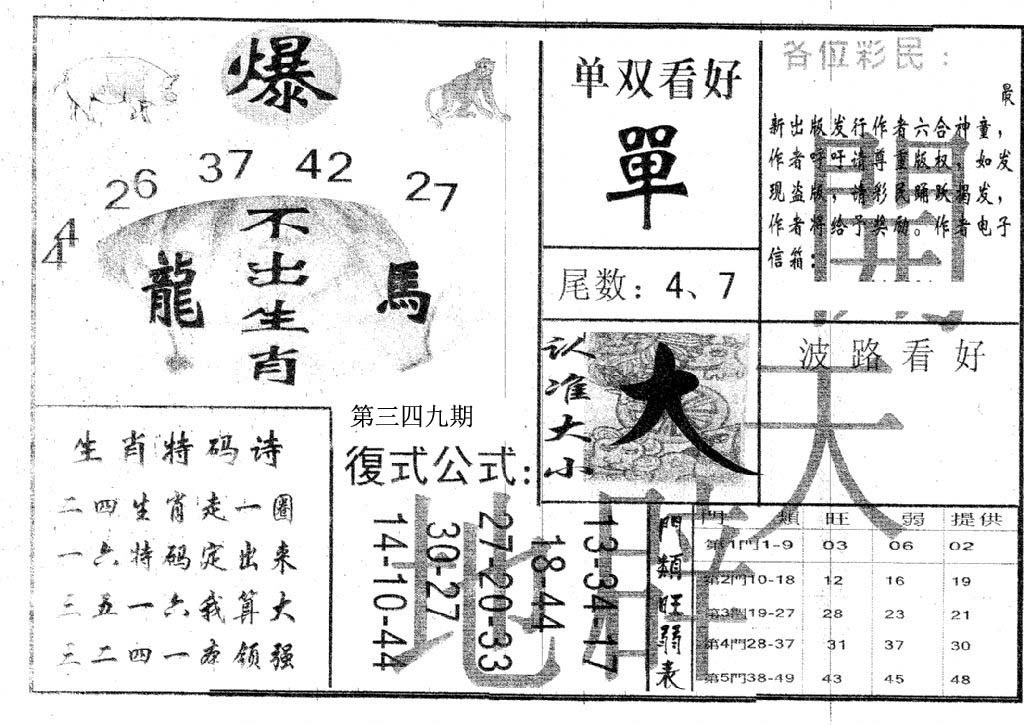 爆
44 26 37 42 27
不出生肖
龍 馬
生肖特码诗
二四生肖走一圈
一六特码定出来
三五一六我算大
三二四一亦领强
第三四九期
復式公式:
13-34-17
18-44
27-20-33
30-27
14-10-44
单双看好
單
尾数：4、7
认准大小
大
各位彩民：
最
新出版发行作者六合神童，
作者呼吁请尊重版权，如发
现盗版，请彩民踊跃揭发，
作者将给予奖励。作者电子
信箱：
波路看好
門類旺弱表
門類 旺 弱 提供
第1門1-9 03 06 02
第2門10-18 12 16 19
第3門19-27 28 23 21
第4門28-37 31 37 30
第5門38-49 43 45 48